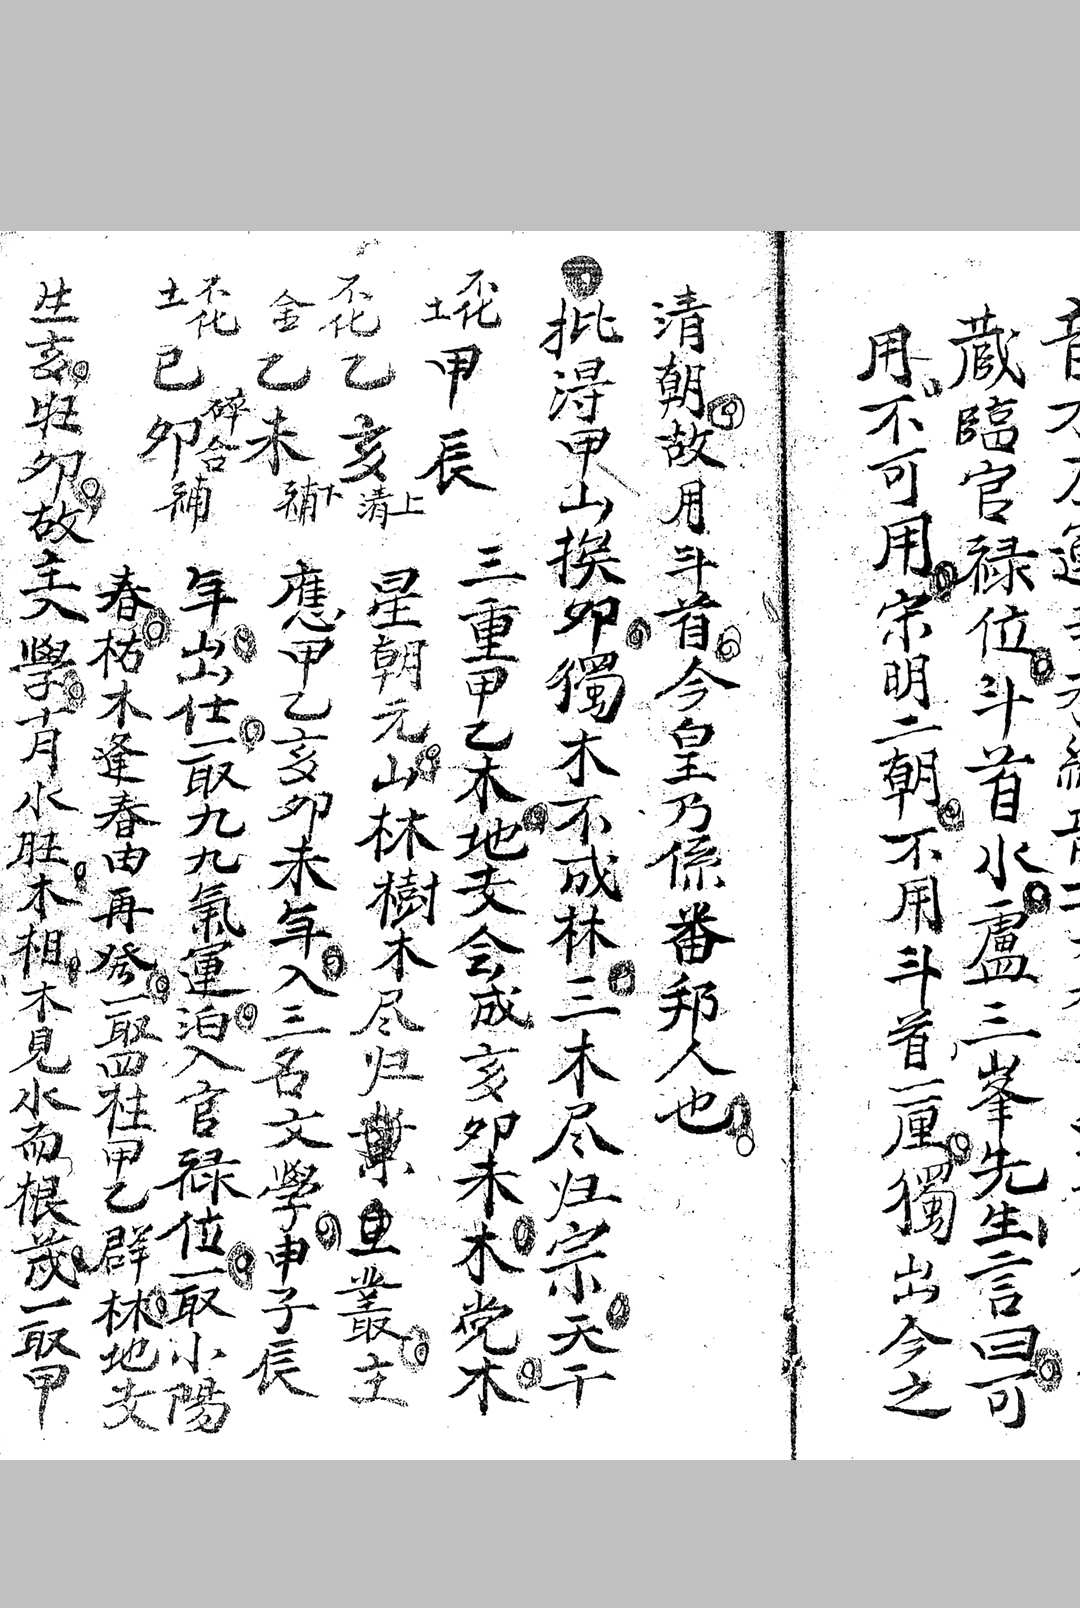 蔵臨官禄位斗首水盧三峯先生言曰可
用不可用宋明二朝不用斗首一厘獨出今之
清朝故用斗首今皇乃係番邦人也
批淂甲山挨卯獨木不成林三木尽归宗天干
不化土甲辰
三重甲乙木地支会成亥卯未木党木
不化乙亥上清
星朝元山林樹木尽归業重叢主
金乙未下補
應甲乙亥卯未年入三名文學申子辰
不化土己卯碎合補
年出仕一取九九氣運泊入官禄位一取小陽
春枯木逢春由再発一取四柱甲乙群林地支
生亥旺卯故主入學十月水旺木相木見水而根茂一取甲